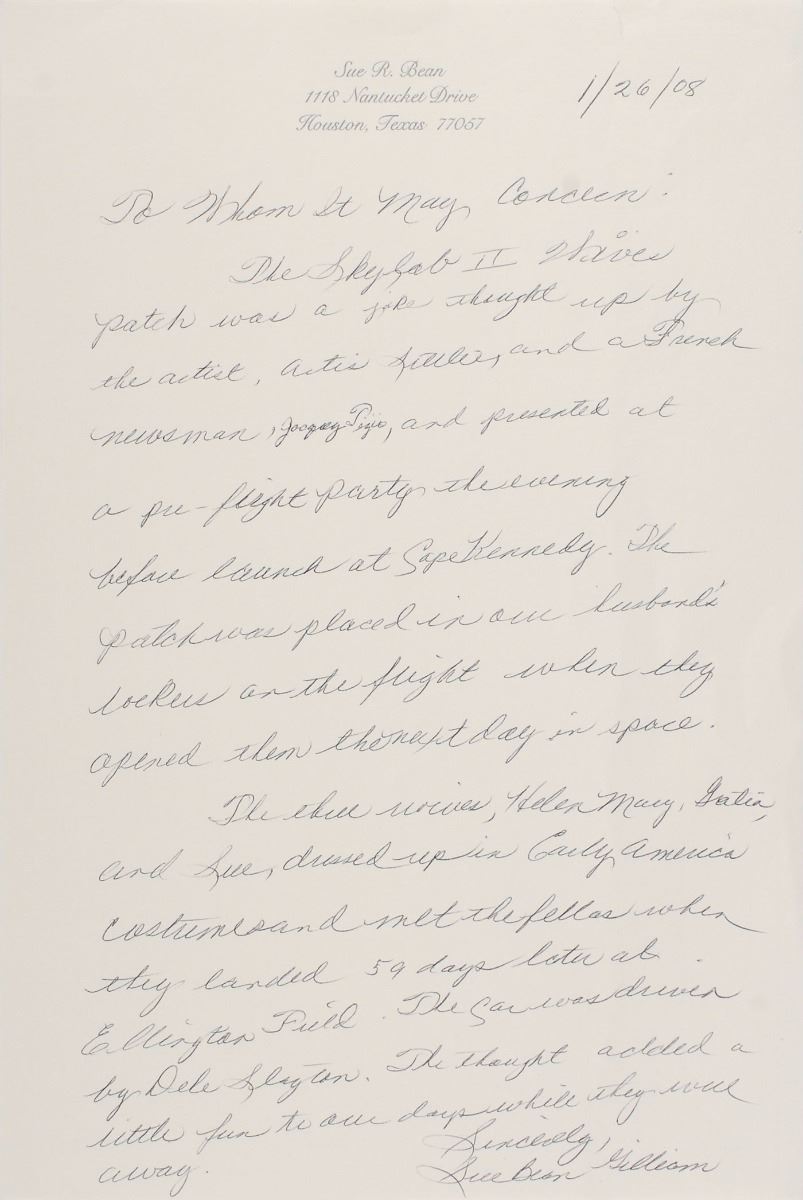 Sue R. Bean
1118 Nantucket Drive
Houston, Texas 77057
1/26/08
To Whom It May Concern:
The Skylab II Wives
patch was a joke thought up by
the artist, Artis and a French
newsman, Jacques and presented at
a pre-flight party the evening
before launch at Cape Kennedy. The
patch was placed in our husband's
lockers on the flight when they
opened them the next day in space.
The three wives, Helen Mary, Gratia,
and Sue, dressed up in Early America
costumes and met the fellas when
they landed 59 days later at
Ellington Field. The car was driven
by Deke Slayton. The thought added a
little fun to our days while they were
away.
Sincerely,
Sue Bean Gilliam